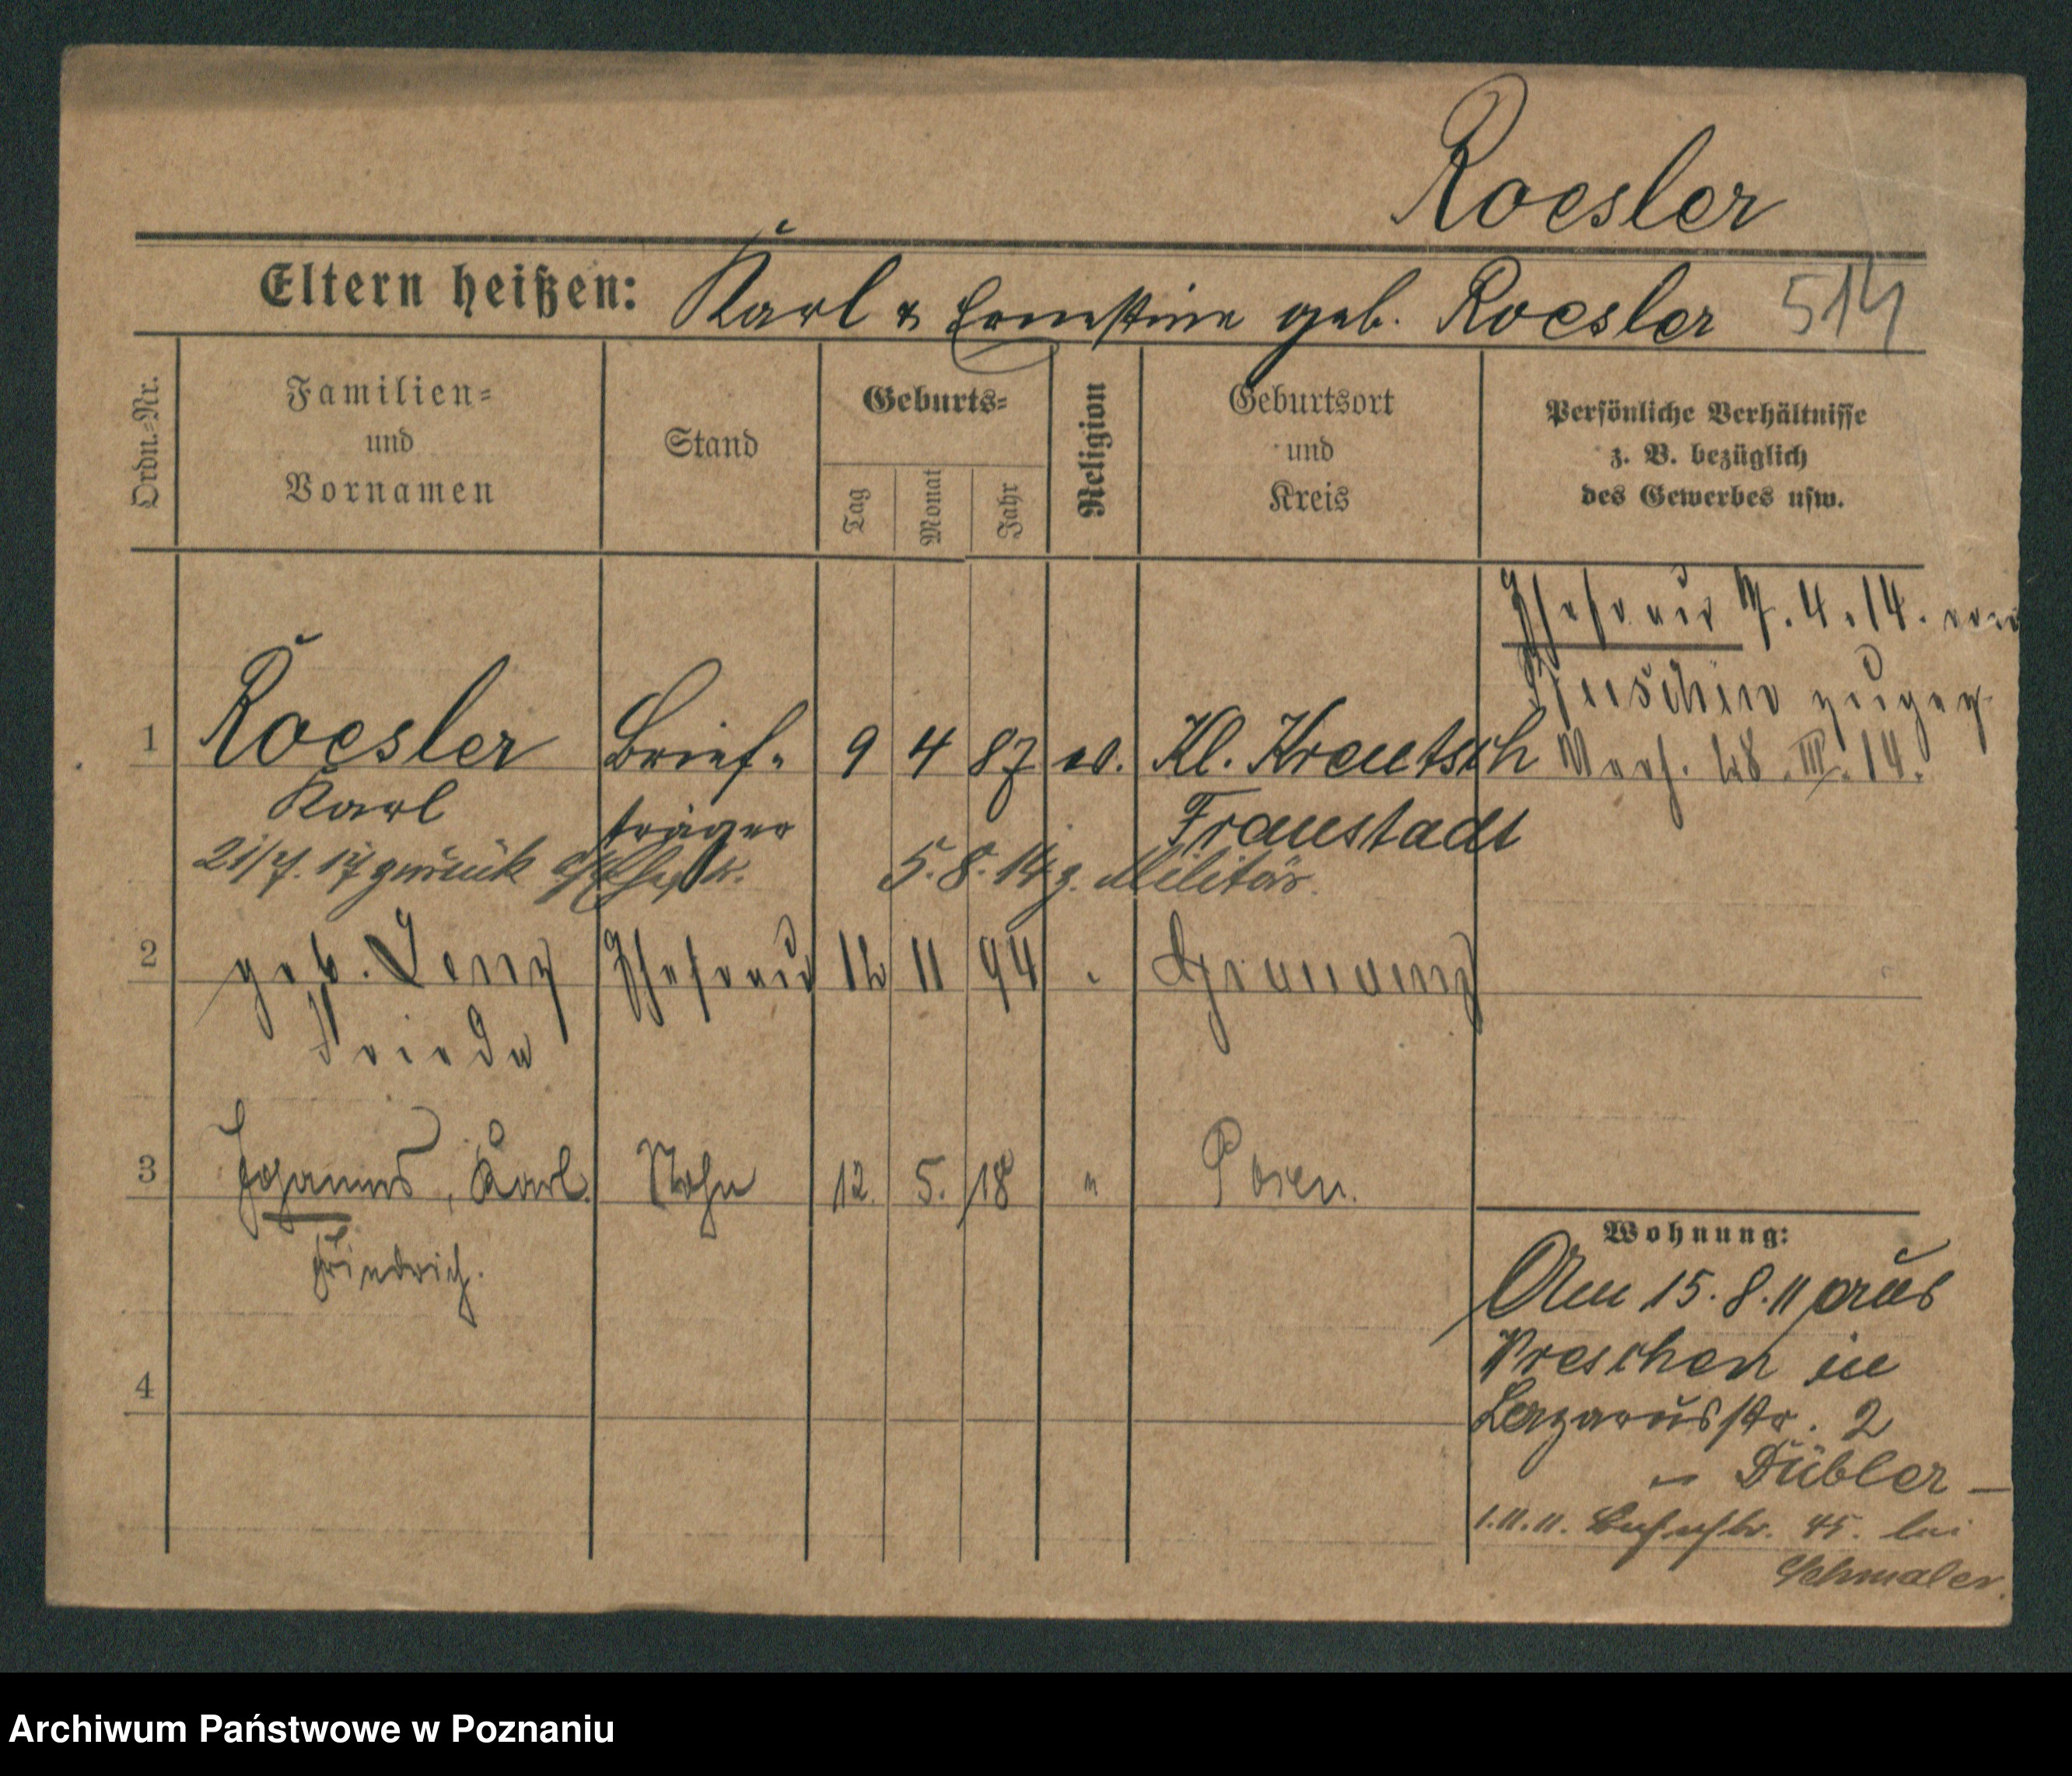 Roesler
Eltern heißen: Karl & Ernestine geb. Roesler 514
Ordn.=Nr.
Familien=
und
Vornamen
Stand
Geburts=
Tag
Monat
Jahr
Religion
Geburtsort
und
Kreis
Persönliche Verhältnisse
z. B. bezüglich
des Gewerbes usw.
Ehefrau 7.4.14. von
zugez.
1 Roesler Brief= 9 4 87 ev. Kl. Kreutsch Verh. 28.III.14.
Karl träger Fraustadt
21/7.17 zurück 5.8.14 z. Militär.
2 geb. Lenz Ehefrau 12 11 94 "
Frieda
3 Johannes, Karl Sohn 12. 5. 18 " Posen.
Friedrich.
4
Wohnung:
Am 15.8.11 aus
Wreschen in
Lazarusstr. 2
- Dübler -
1.11.11. 45. bei
Schmaler.
Archiwum Państwowe w Poznaniu